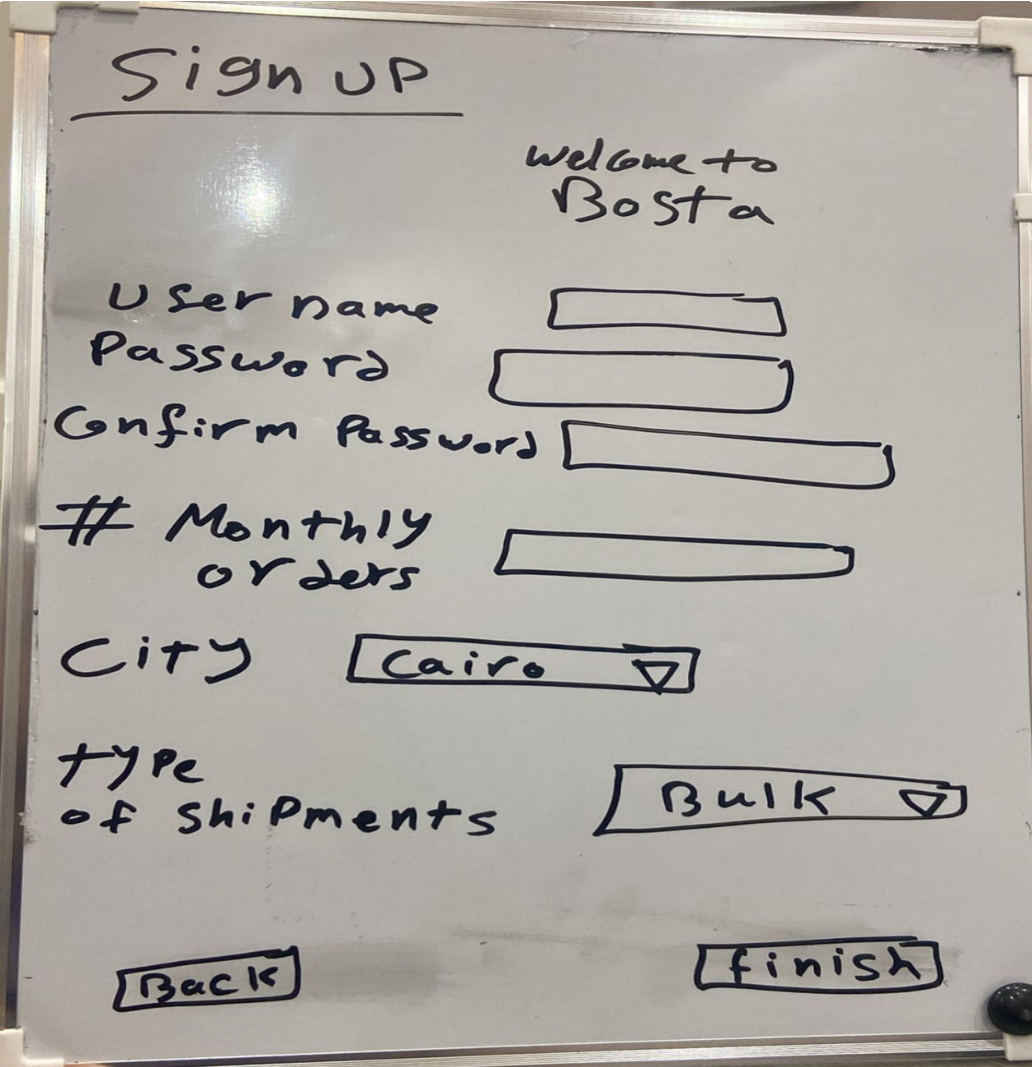 Sign UP
welcome to
Bosta
User name
Password
Confirm Password
# Monthly
orders
City Cairo
type
of shipments Bulk
Back finish